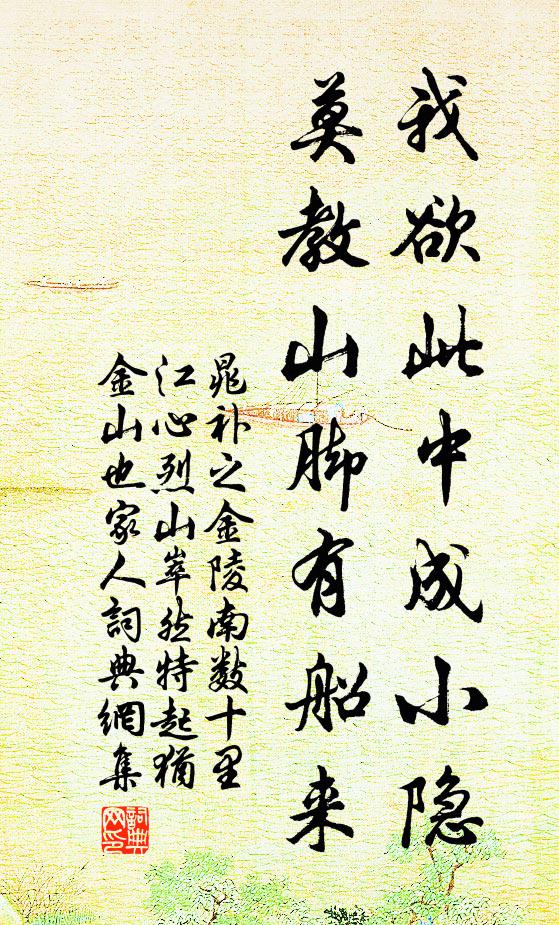 我欲此中成小隐
莫教山脚有船来
晁补之金陵南数十里
江心烈山崒然特起犹
金山也家人詞典網集
詞典
网印